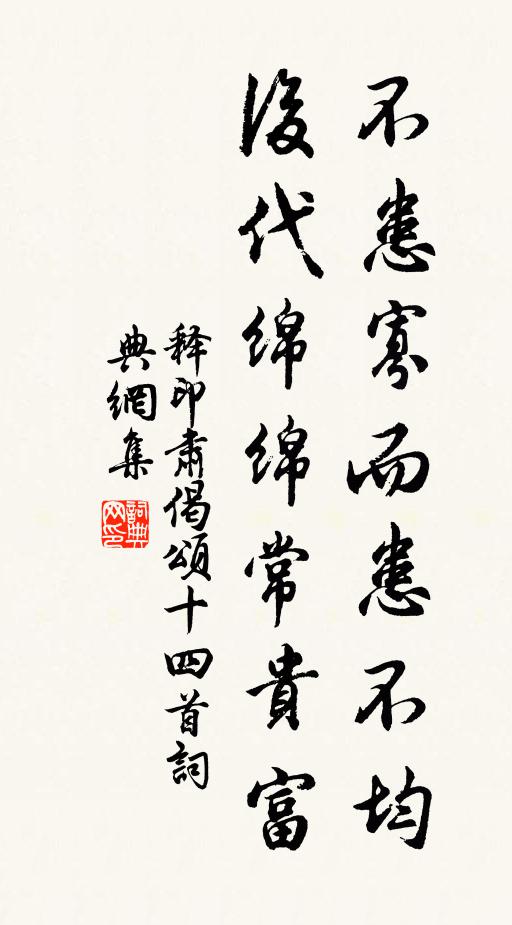 不患寡而患不均
後代綿綿常貴富
释印肅偈頌十四首詞
典網集
詞典
网印